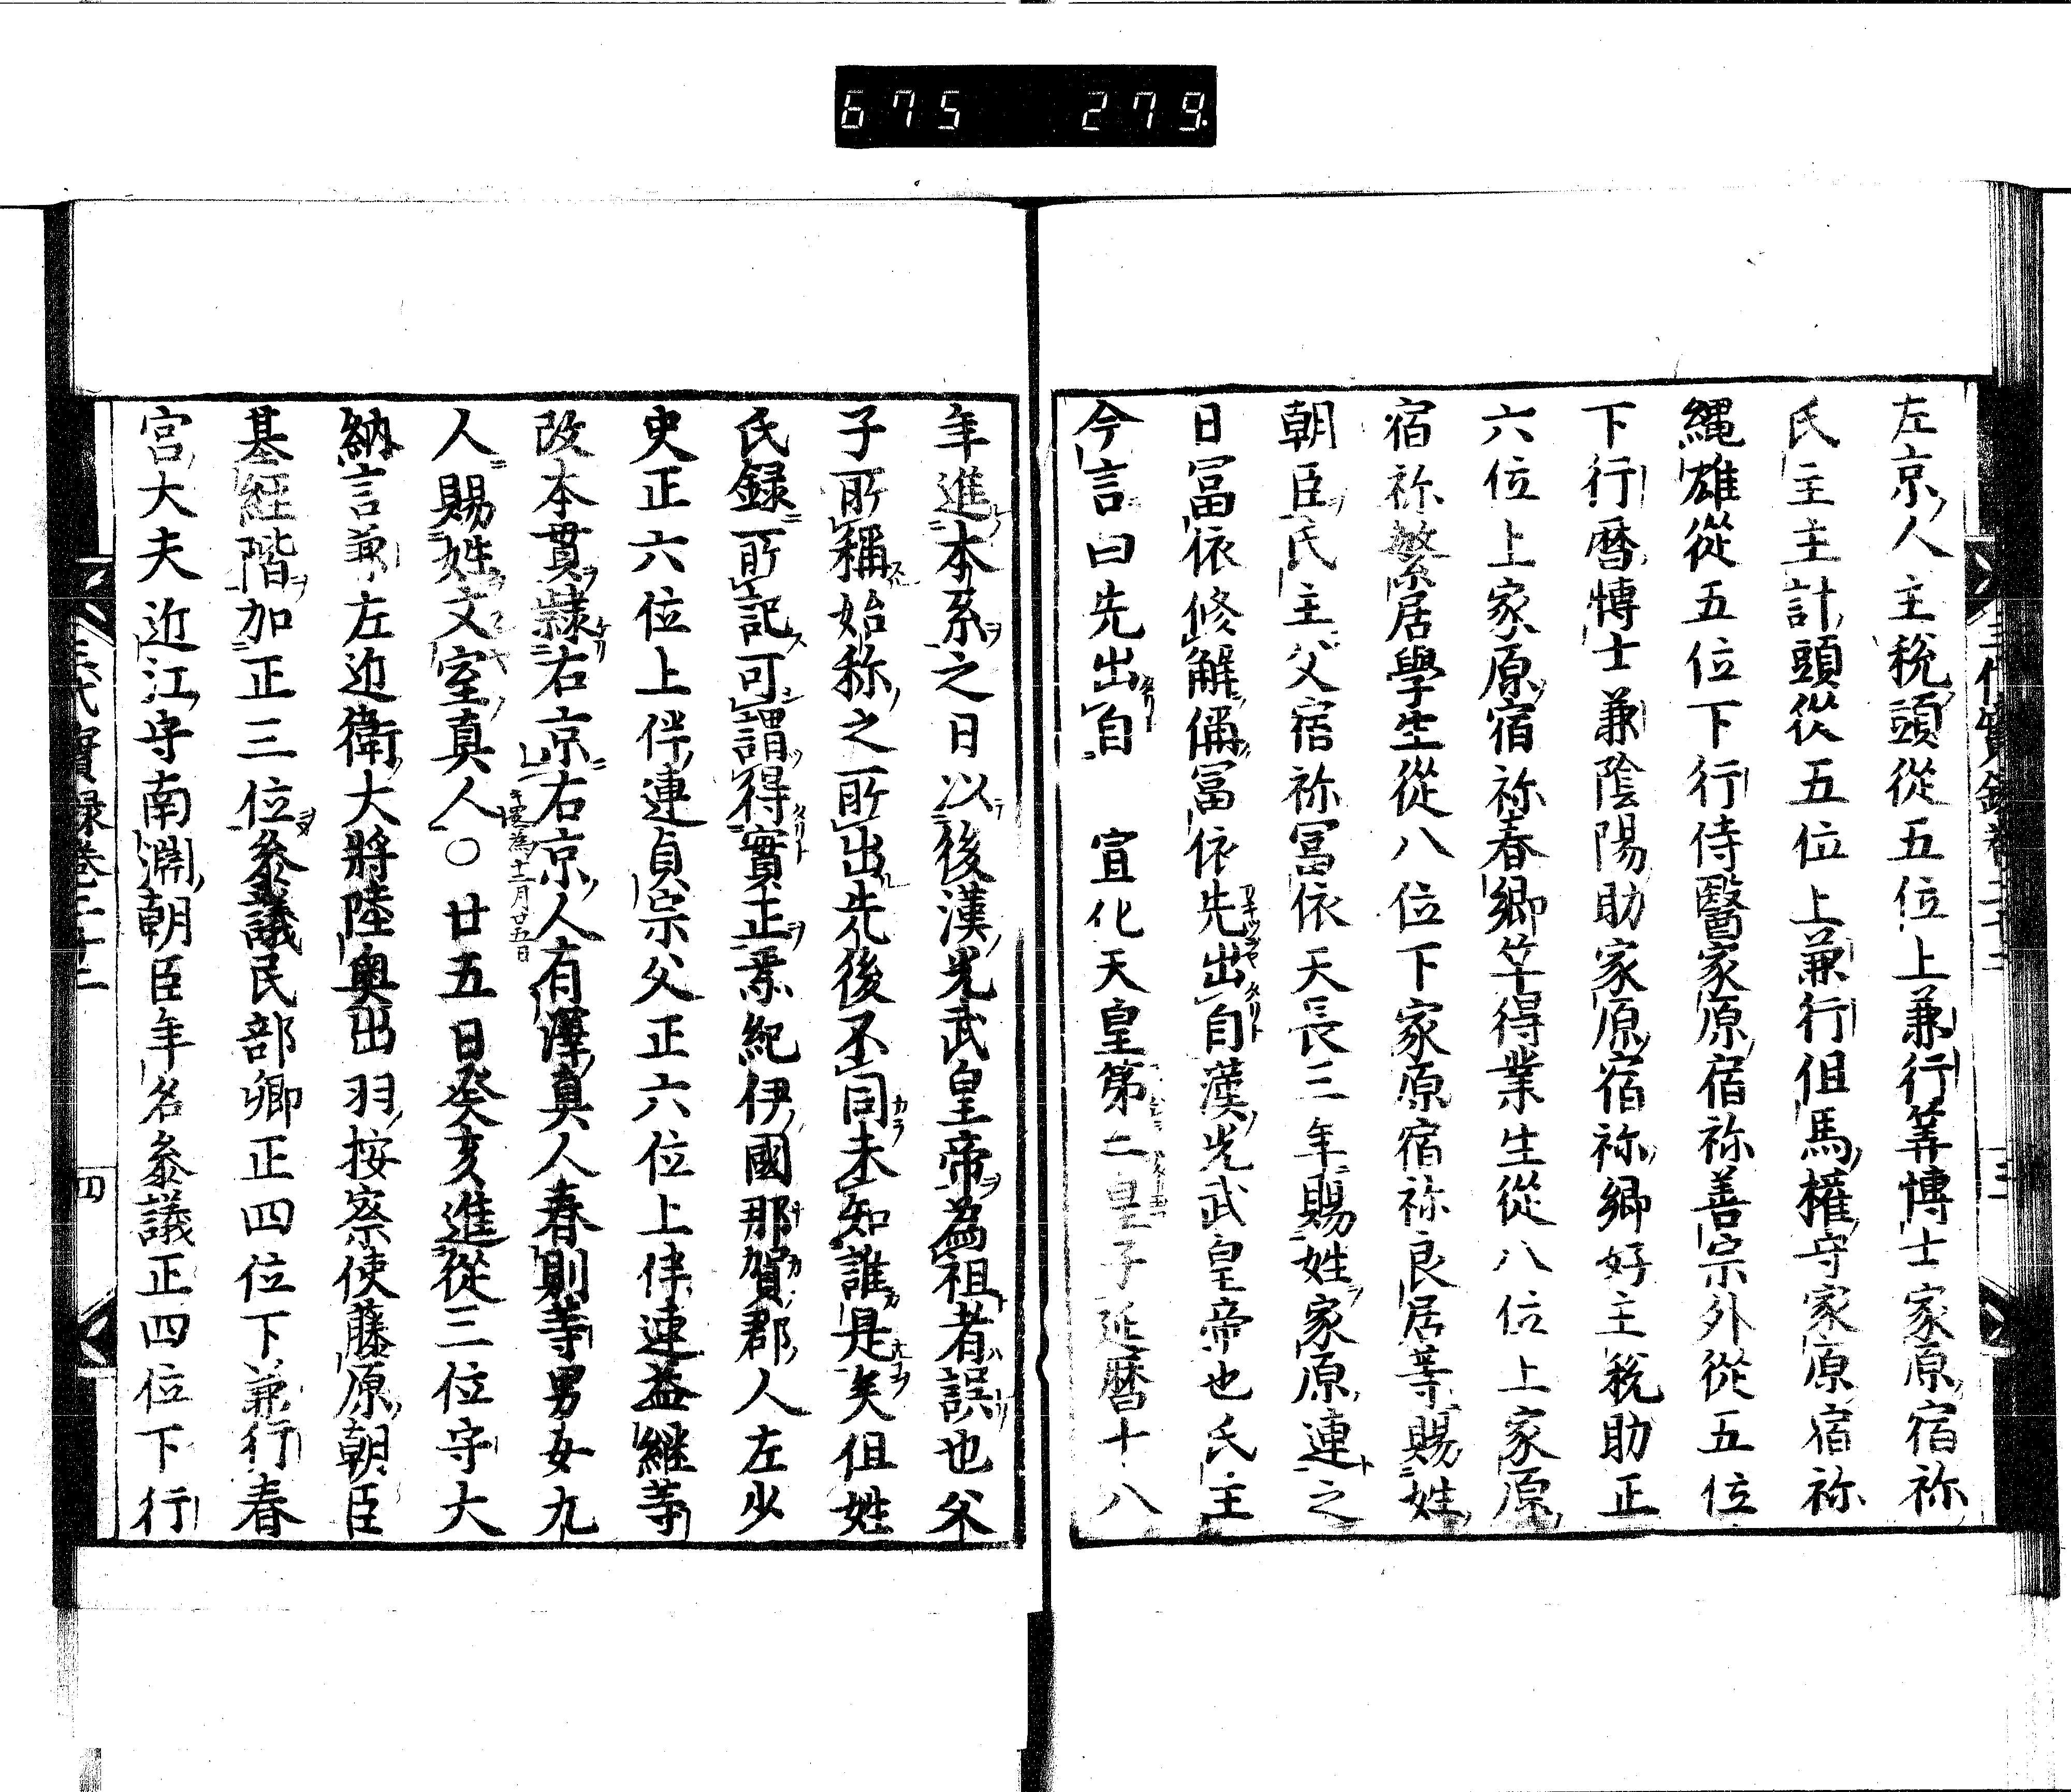 675 279.
左京人主税頭從五位上兼行筭博士家原宿祢
氏主主計頭從五位上兼行但馬權守家原宿祢
縄雄從五位下行侍醫家原宿祢善宗外從五位
下行暦博士兼陰陽助家原宿祢郷好主税助正
六位上家原宿祢春郷竿得業生從八位上家原
宿祢繁居學生從八位下家原宿祢良居等賜姓
朝臣氏主父宿祢冨依天長三年賜姓家原連之
日冨依修解偁冨依先出自漢光武皇帝也氏主
今言曰先出自 宣化天皇第二皇子延暦十八
年進本系之日以後漢光武皇帝為祖者誤也父
子所稱始称之所出先後丞同未知誰是矣但姓
氏録所記可謂得實正焉紀伊國那賀郡人左少
史正六位上伴連貞宗父正六位上伴連益継等
改本貫隷右京右京人有澤真人春則等男女九
人賜姓文室真人○廿五日癸亥進從三位守大
納言兼左近衛大將陸奥出羽按察使藤原朝臣
基経階加正三位參議民部卿正四位下兼行春
宮大夫近江守南淵朝臣年名參議正四位下行
三代實録巻二十二 四